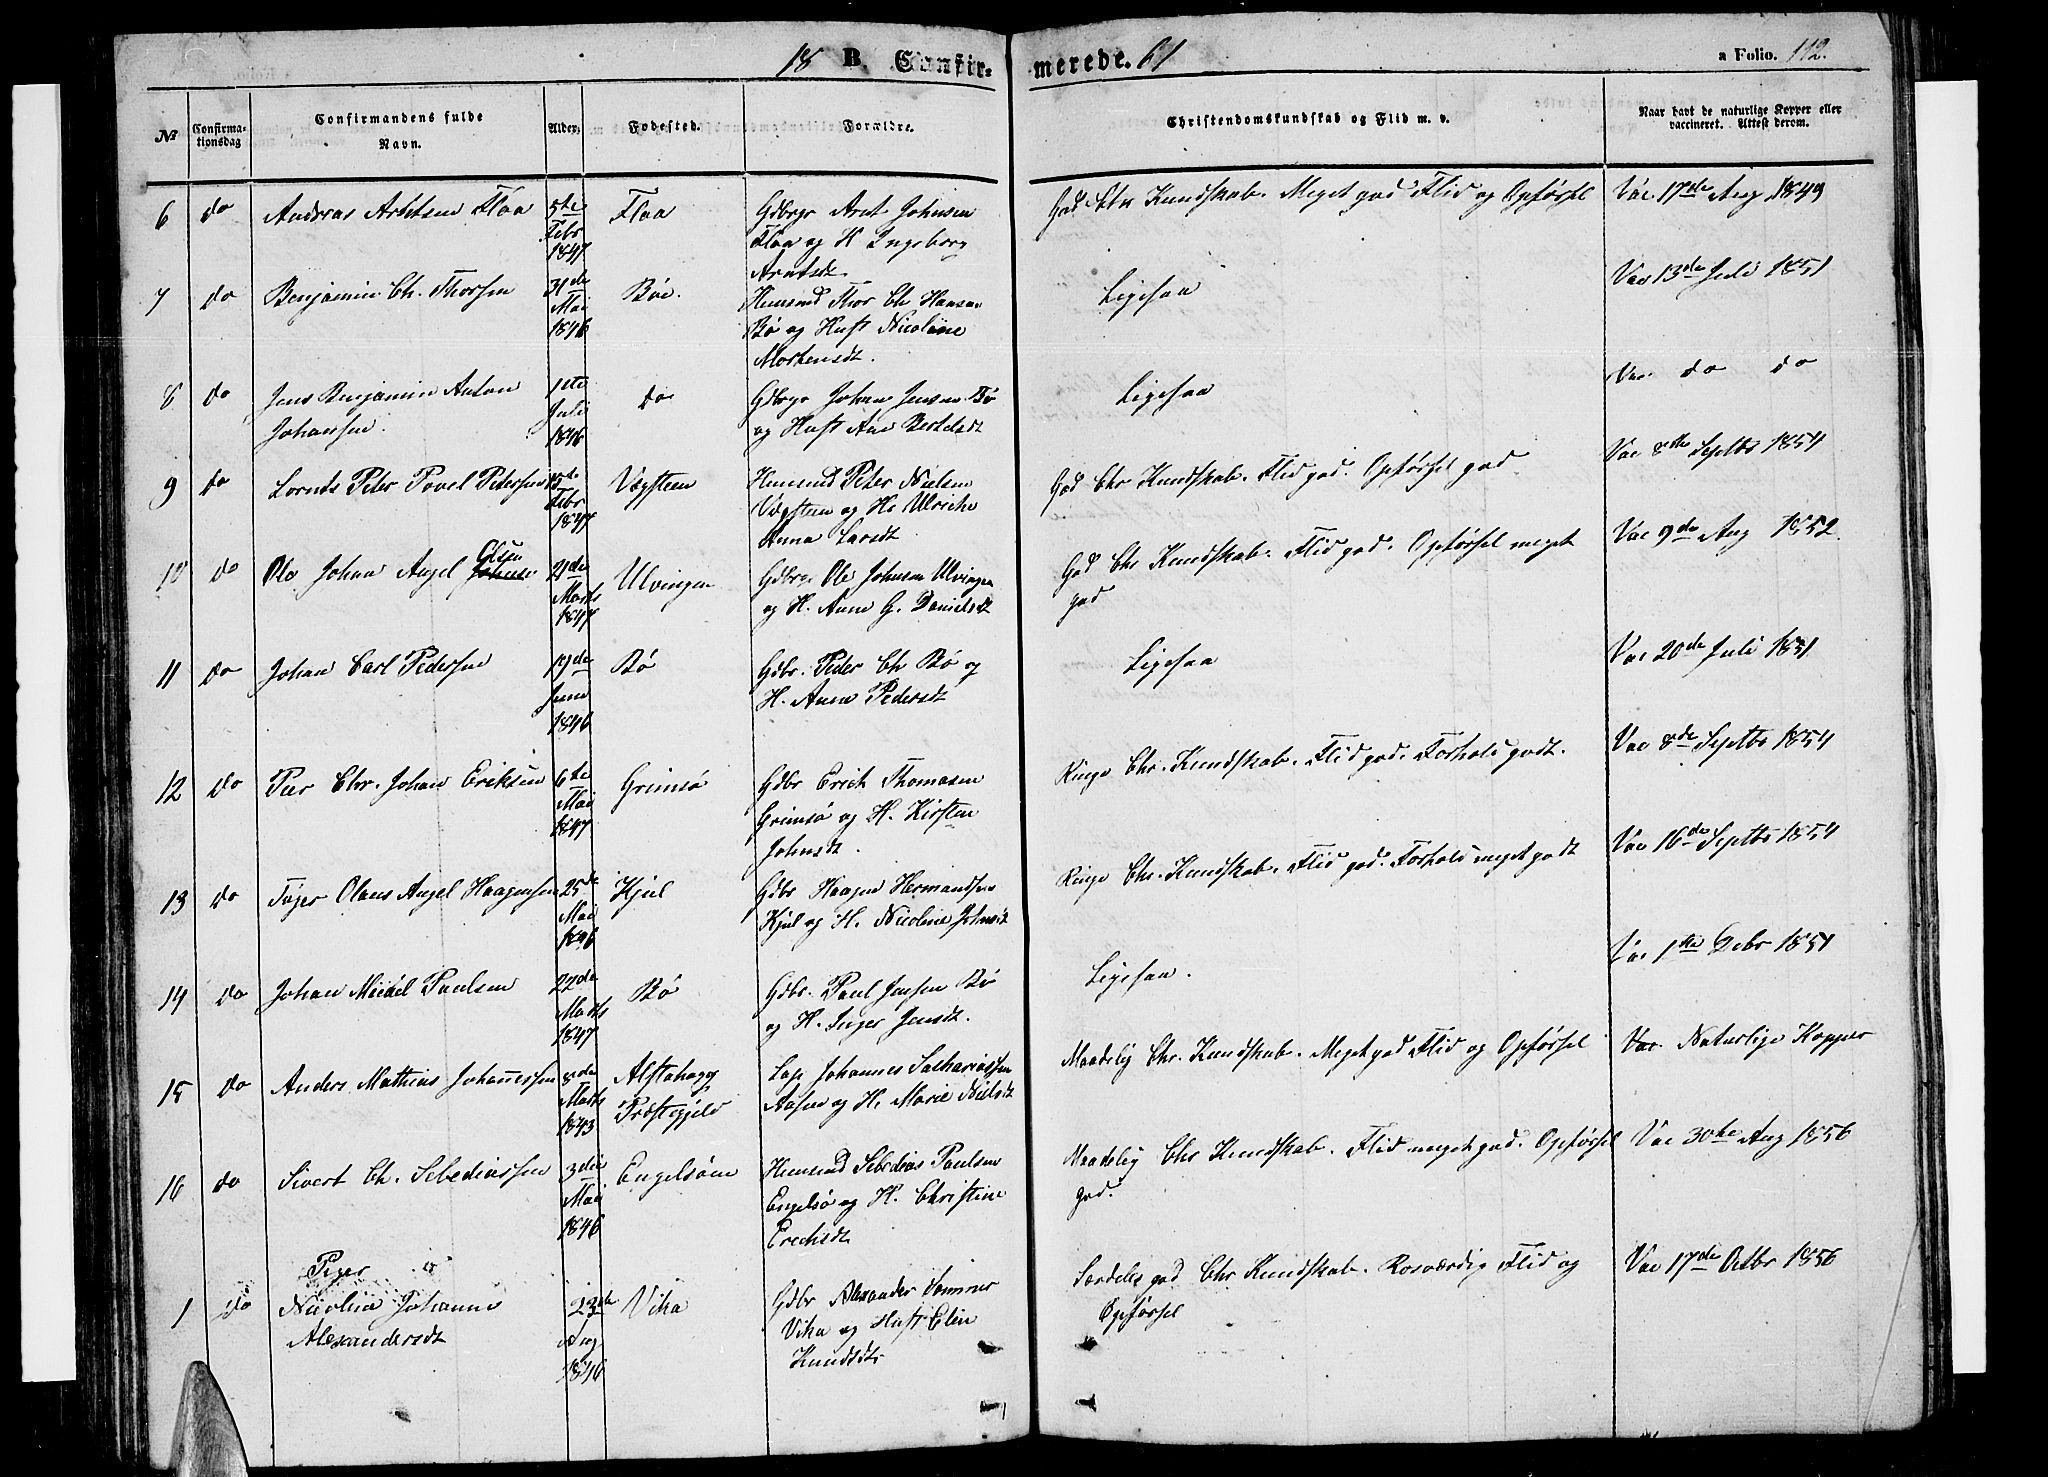 18 B. Confirmerede. 61
a Folio. 112.
No
Confirmationsdag
Confirmandens fulde Navn.
Alder.
Fødested.
Forældre.
Christendomskundskab og Flid m. v.
Naar havt de naturlige Kopper eller vaccineret. Attest derom.
6 do Andreas Arntsen Floa 5te Febr 1847 Floa
Gdbrgr Arnt Johnsen
Floa og H Ingeborg
Arntsdt
God Chr Kundskab. Meget god Flid og Opførsel
Vac 17de Aug 1849
7 do Benjamin Ch. Thorsen 31de Mai 1846 Bøe.
Huusmd Thor Ch Hansen
Bø og Hust Nicoline
Mortensdt.
Ligesaa
Vac 13de Juli 1851
8 do Jens Benjamin Anton
Johansen. 1ste Juli 1846 do
Gdbrgr Johan Jensen Bø
og Hust Ane Bertelsdt
Ligesaa
Vac do do
9 do Lornts Peter Povel Petersen Febr 1847 Vægsteen
Huusmd Peter Nielsen
Vægsteen og H. Ulriche
Anna Larsdt
God Chr Kundskab. Flid god. Opførsel god
Vac 8de Septbr 1854
10 do Ole Johan Angel Olsen 21de Marts 1847 Ulvingen
Gdbrgr Ole Johnsen Ulvingen
og H. Anne G. Danielsdt
God Chr Kundskab. Flid god. Opførsel meget
god
Vac 9de Aug 1852
11 do Johan Carl Pedersen 19de Juni 1846 Bø
Gdbr. Peder Ch Bø og
H. Anne Pedersdt
Ligesaa
Vac 20de Juli 1851
12 do Peer Chr. Johan Eriksen 6te Mai 1847 Grimsø
Gdbr Erich Thomasen
Grimsø og H. Kirsten
Johnsdt.
Ringe Chr. Kundskab. Flid god. Forhold godt.
Vac 8de Septbr 1854
13 do Inger Olaus Angel Haagensen 25de Mai 1846 Kjul
Gdbr Haagen Hermandsen
Kjul og H. Nicoline Johnsdt
Ringe Chr. Kundskab. Flid god. Forhold meget godt
Vac 16de Septbr 1854
14 do Johan Mickel Paulsen 22de Marts 1847 Bø
Gdbr. Paul Jensen Bø
og H. Inger Jensdt.
Ligesaa.
Vac 1ste Debr 1851
15 do Anders Mathias Johannessen 8de Marts 1843 Alstahoug
Præstegjeld
Lap Johannes Sachariassen
Aasen og H. Marie Nielsdt
Maadelig Chr. Kundskab. Meget god Flid og Opførsel
Vac. Naturlige Kopper
16 do Sivert Ch. Sebediassen 3die Mai 1846 Engelsøen
Huusmd Sebedias Paulsen
Engelsø og H. Christine
Erechsdt
Maadelig Chr Kundskab. Flid meget god. Opførsel
god.
Vac 30te Aug 1856
Piger
1 do Nicolina Johanna
Alexandersdt 23de Aug 1846 Vika
Gdbr Alexander Sommer
Vika og Hust Elen
Knudsdt
Særdeles god Chr Kundskab. Rosværdig Flid og
Opførsel
Vac 17de Octbr 1856